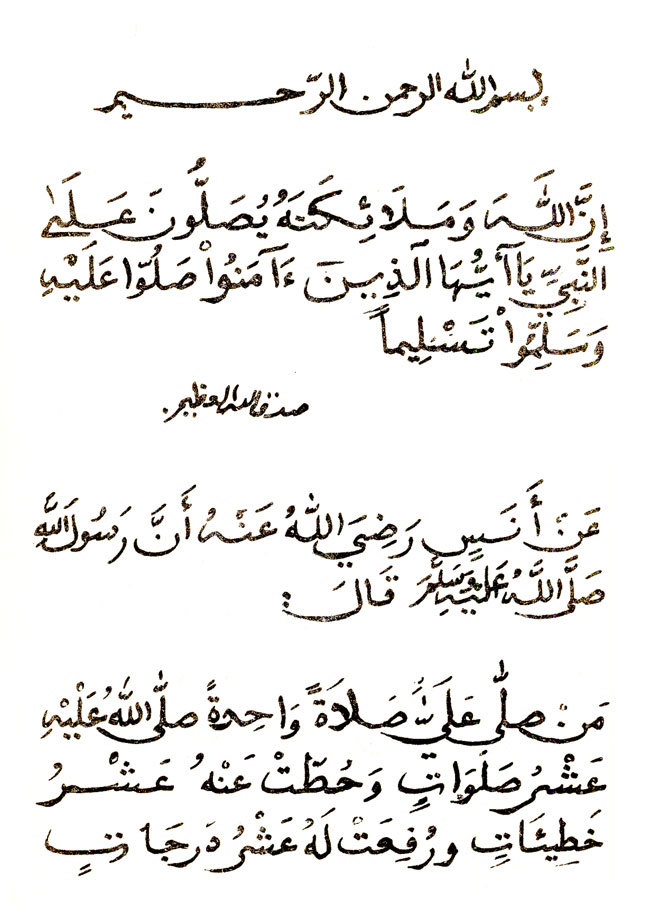 بسم الله الرحمن الرحيم
إِنَّ اللَّهَ وَمَلَائِكَتَهُ يُصَلُّونَ عَلَى
النَّبِيِّ يَاأَيُّهَا الَّذِينَ ءَامَنُواْ صَلُّوا عَلَيْهِ
وَسَلِّمُواْ تَسْلِيماً
صدق الله العظيم.
عَنْ أَنَسٍ رَضِيَ اللهُ عَنْهُ أَنَّ رَسُولَ اللهِ
صَلَّى اللَّهُ عَلَيْهِ وَسَلَّمَ قَالَ :
مَنْ صلَّى عَلَيَّ صَلاَةً وَاحِدةً صلَّى اللهُ عَلَيْهِ
عَشْرُ صَلَوَاتٍ وَحُطَّتْ عَنْهُ عَشْرُ
خَطِيئَاتٍ ورُفِعَتْ لَهُ عَشْرُ دَرجَاتٍ